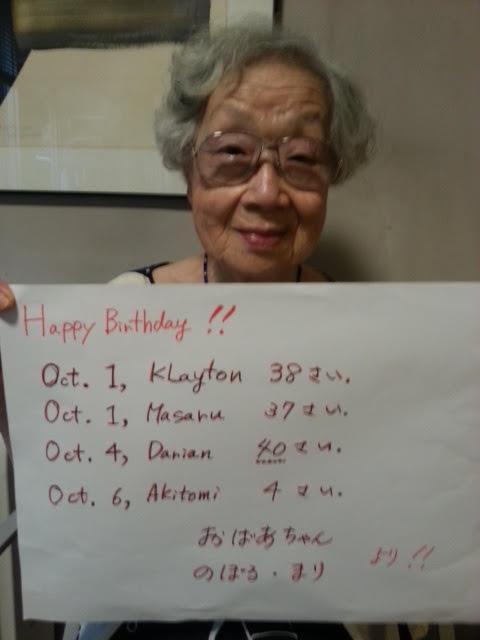 Happy Birthday !!
Oct. 1, Klayton 38さい.
Oct. 1, Masaru 37さい.
Oct. 4, Darian 40さい.
Oct. 6, Akitomi 4さい.
おばあちゃん
のぼる・まり より!!